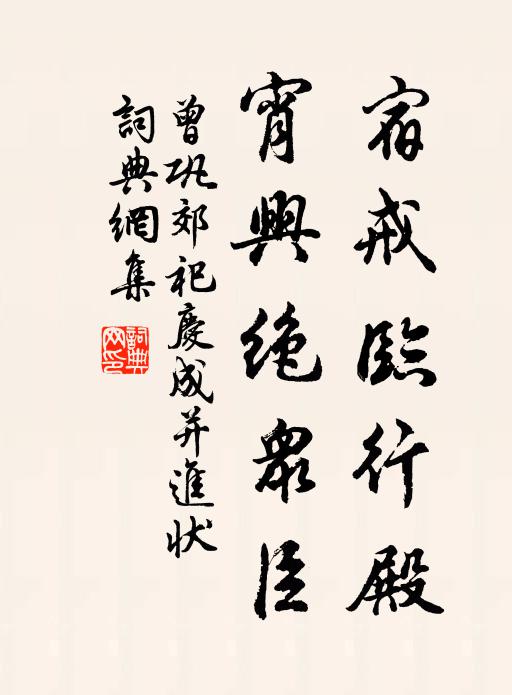 宿戒臨行殿
宵興絶衆臣
曾巩郊祀慶成并進狀
詞典網集
詞典网印